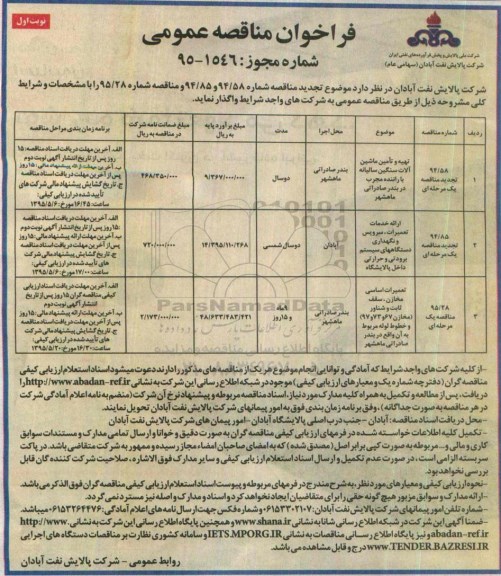 نوبت اول
فراخوان مناقصه عمومی
شماره مجوز: ۱۵۴۶-۹۵
شرکت ملی پالایش و پخش فرآورده‌های نفتی ایران
شرکت پالایش نفت آبادان (سهامی عام)
شرکت پالایش نفت آبادان در نظر دارد موضوع تجدید مناقصه شماره ۹۴/۵۸ و ۹۴/۸۵ و مناقصه شماره ۹۵/۲۸ را با مشخصات و شرایط
کلی مشروحه ذیل از طریق مناقصه عمومی به شرکت های واجد شرایط واگذار نماید.
ردیف شماره مناقصه موضوع محل اجرا مدت مبلغ برآورد پایه به ریال مبلغ ضمانت نامه شرکت در مناقصه به ریال برنامه زمان بندی مراحل مناقصه
۱
۹۴/۵۸
تجدید مناقصه
یک مرحله ای
تهیه و تأمین ماشین
آلات سنگین سالیانه
با راننده مجرب
در بندر صادراتی
ماهشهر
بندر صادراتی
ماهشهر
دوسال
۹/۳۶۷/۰۰۰/۰۰۰
۴۶۸/۳۵۰/۰۰۰
الف. آخرین مهلت دریافت اسناد مناقصه: ۱۵
روز پس از تاریخ انتشار آگهی نوبت دوم
ب. آخرین مهلت ارائه پیشنهاد مالی: ۱۵ روز
پس از آخرین مهلت دریافت اسناد مناقصه
ج. تاریخ گشایش پیشنهاد مالی شرکت های
تأیید شده در ارزیابی کیفی:
ساعت: ۱۶/۴۵ مورخ: ۱۳۹۵/۵/۶
۲
۹۴/۸۵
تجدید مناقصه
یک مرحله ای
ارائه خدمات
تعمیرات، سرویس
و نگهداری
دستگاههای سیستم
برودتی و حرارتی
داخل پالایشگاه
آبادان
دوسال شمسی
۱۴/۳۹۵/۱۱۰/۲۶۸
۷۲۰/۰۰۰/۰۰۰
الف. آخرین مهلت دریافت اسناد مناقصه
: ۱۵ روز پس از تاریخ انتشار آگهی نوبت دوم
ب. آخرین مهلت ارائه پیشنهاد مالی: ۱۵ روز
پس از آخرین مهلت دریافت اسناد مناقصه
ج. تاریخ گشایش پیشنهاد مالی شرکت های
تأیید شده در ارزیابی کیفی:
ساعت: ۱۷/۰۰ مورخ: ۱۳۹۵/۵/۶
۳
۹۵/۲۸
مناقصه یک
مرحله ای
تعمیرات اساسی
مخازن، سقف
ثابت و شناور
و خطوط لوله مربوط
به آن واقع در بندر
صادراتی ماهشهر
بندر صادراتی
ماهشهر
و ۱۵ روز
۲۸/۶۳۳/۴۸۳/۲۳۱
۲/۱۷۳/۰۰۰/۰۰۰
الف. آخرین مهلت دریافت اسناد ارزیابی
کیفی مناقصه گران ۱۵ روز پس از تاریخ
انتشار آگهی نوبت دوم
ج. تاریخ گشایش پیشنهاد مالی شرکت های
تأیید شده در ارزیابی کیفی:
ساعت: ۱۶/۳۰ مورخ: ۱۳۹۵/۵/۲۰
ParsNamadData
-از کلیه شرکت های واجد شرایط که آمادگی و توانایی انجام موضوع هر یک از مناقصه های مذکور را دارند دعوت میشود اسناد استعلام ارزیابی کیفی
مناقصه گران (دفترچه شماره یک و معیارهای ارزیابی کیفی) موجود در شبکه اطلاع رسانی این شرکت به نشانی http://www.abadan-ref.ir را
دریافت، پس از مطالعه و تکمیل به همراه کلیه مدارک مورد نیاز، اسناد مناقصه مربوطه و پیشنهاد نرخ آن شرکت (منضم به نامه اعلام آمادگی شرکت
در هر مناقصه به صورت جداگانه)، وفق برنامه زمان بندی فوق به امور پیمانهای شرکت پالایش نفت آبادان تحویل نمایند.
-محل دریافت اسناد مناقصه: آبادان - جنب درب اصلی پالایشگاه آبادان - امور پیمان های شرکت پالایش نفت آبادان
-تکمیل کلیه اطلاعات خواسته شده در فرمهای ارزیابی کیفی مناقصه گران به صورت دقیق و خوانا و ارسال تمامی مدارک و مستندات سوابق
کاری و مالی و... مربوطه به صورت کپی برابر اصل (مصدق شده) که به امضای صاحبان امضاء مجاز رسیده و ممهور به مهر شرکت متقاضی باشد. در پاکت
سربسته الزامی است، در صورت عدم تکمیل و ارسال اسناد استعلام ارزیابی کیفی و سایر مدارک فوق الاشاره، صلاحیت شرکت کننده گان قابل
بررسی نخواهد بود.
-نحوه ارزیابی کیفی و معیارهای مورد نظر، به شرح مندرج در فرمهای مربوطه و پیوست اسناد استعلام ارزیابی کیفی مناقصه گران فوق الذکر می باشد.
-ارائه مدارک و سوابق مزبور هیچ گونه حقی را برای متقاضیان ایجاد نخواهد کرد و اسناد و مدارک واصله نیز مسترد نمی گردد.
-شماره تلفن امور پیمانهای شرکت پالایش نفت آبادان: ۰۶۱۵۳۳۰۲۱۰۷ و شماره فکس جهت ارسال نامه های اعلام آمادگی: ۰۶۱۵۳۲۶۴۴۷۶ میباشد.
-ضمناً آگهی این شرکت در شبکه اطلاع رسانی شانا به نشانی www.shana.ir و همچنین پایگاه اطلاع رسانی این شرکت به نشانی http://www.
abadan-ref.ir و نیز پایگاه اطلاع رسانی مناقصات به نشانی IETS.MPORG.IR و سامانه کشوری نظارت بر مناقصات دستگاه های اجرایی
WWW.TENDER.BAZRESI.IR درج و قابل مشاهده می باشد.
روابط عمومی - شرکت پالایش نفت آبادان